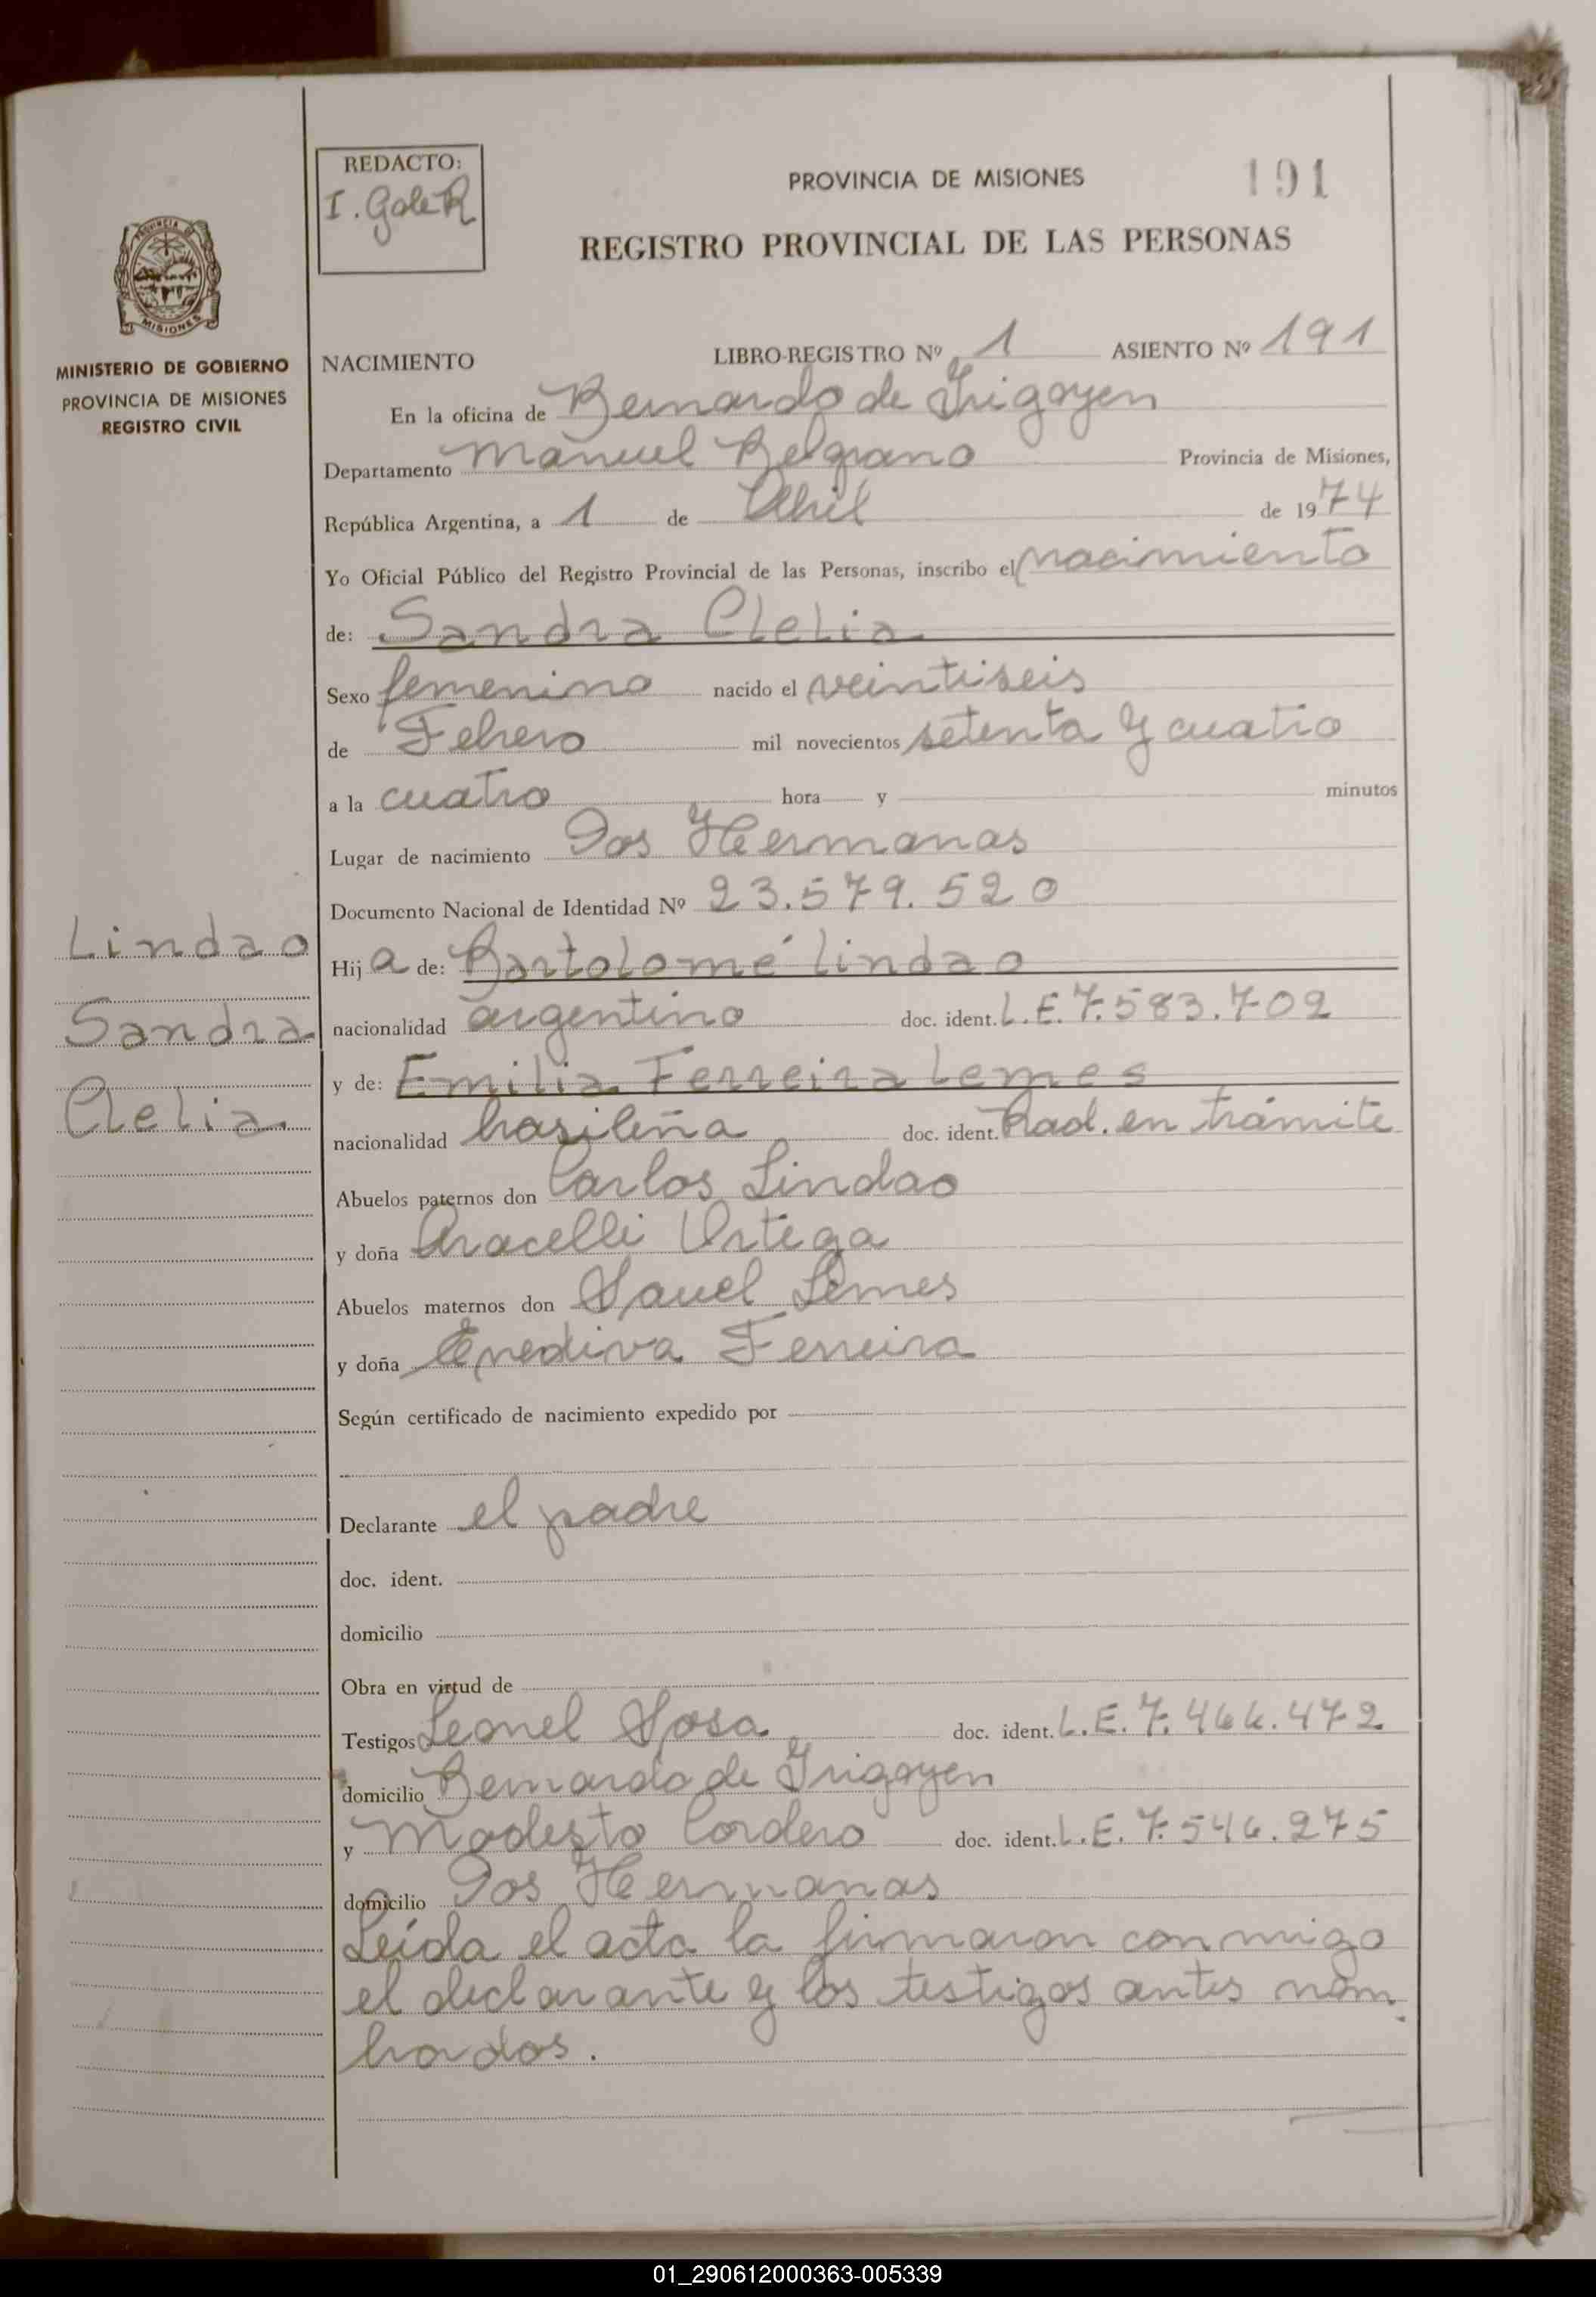 REDACTO:
I. Galer
PROVINCIA DE MISIONES
191
REGISTRO PROVINCIAL DE LAS PERSONAS
PROVINCIA DE
MISIONES
MINISTERIO DE GOBIERNO
PROVINCIA DE MISIONES
REGISTRO CIVIL
NACIMIENTO LIBRO-REGISTRO Nº 1 ASIENTO Nº 191
En la oficina de Bernardo de Irigoyen
Departamento Manuel Belgrano Provincia de Misiones,
República Argentina, a 1 de Abril de 1974
Yo Oficial Público del Registro Provincial de las Personas, inscribo el nacimiento
de: Sandra Clelia
Sexo femenino nacido el veintiseis
de Febrero mil novecientos setenta y cuatro
a la cuatro hora y minutos
Lugar de nacimiento Dos Hermanas
Documento Nacional de Identidad Nº 23.579.520
Lindao
Hija de: Bartolomé Lindao
Sandra
nacionalidad argentino doc. ident. L.E. 7.583.702
y de: Emilia Ferreira Lemes
Clelia
nacionalidad brasileña doc. ident. Rad. en trámite
Abuelos paternos don Carlos Lindao
y doña Aracelli Ortega
Abuelos maternos don Sauel Lemes
y doña Enediva Ferreira
Según certificado de nacimiento expedido por
Declarante el padre
doc. ident.
domicilio
Obra en virtud de
Testigos Leonel Sosa doc. ident. L.E. 7.466.472
domicilio Bernardo de Irigoyen
y Modesto Cordero doc. ident. L.E. 7.546.275
domicilio Dos Hermanas
Leída el acta la firmaron conmigo
el declarante y los testigos antes nom
brados.
01_290612000363-005339